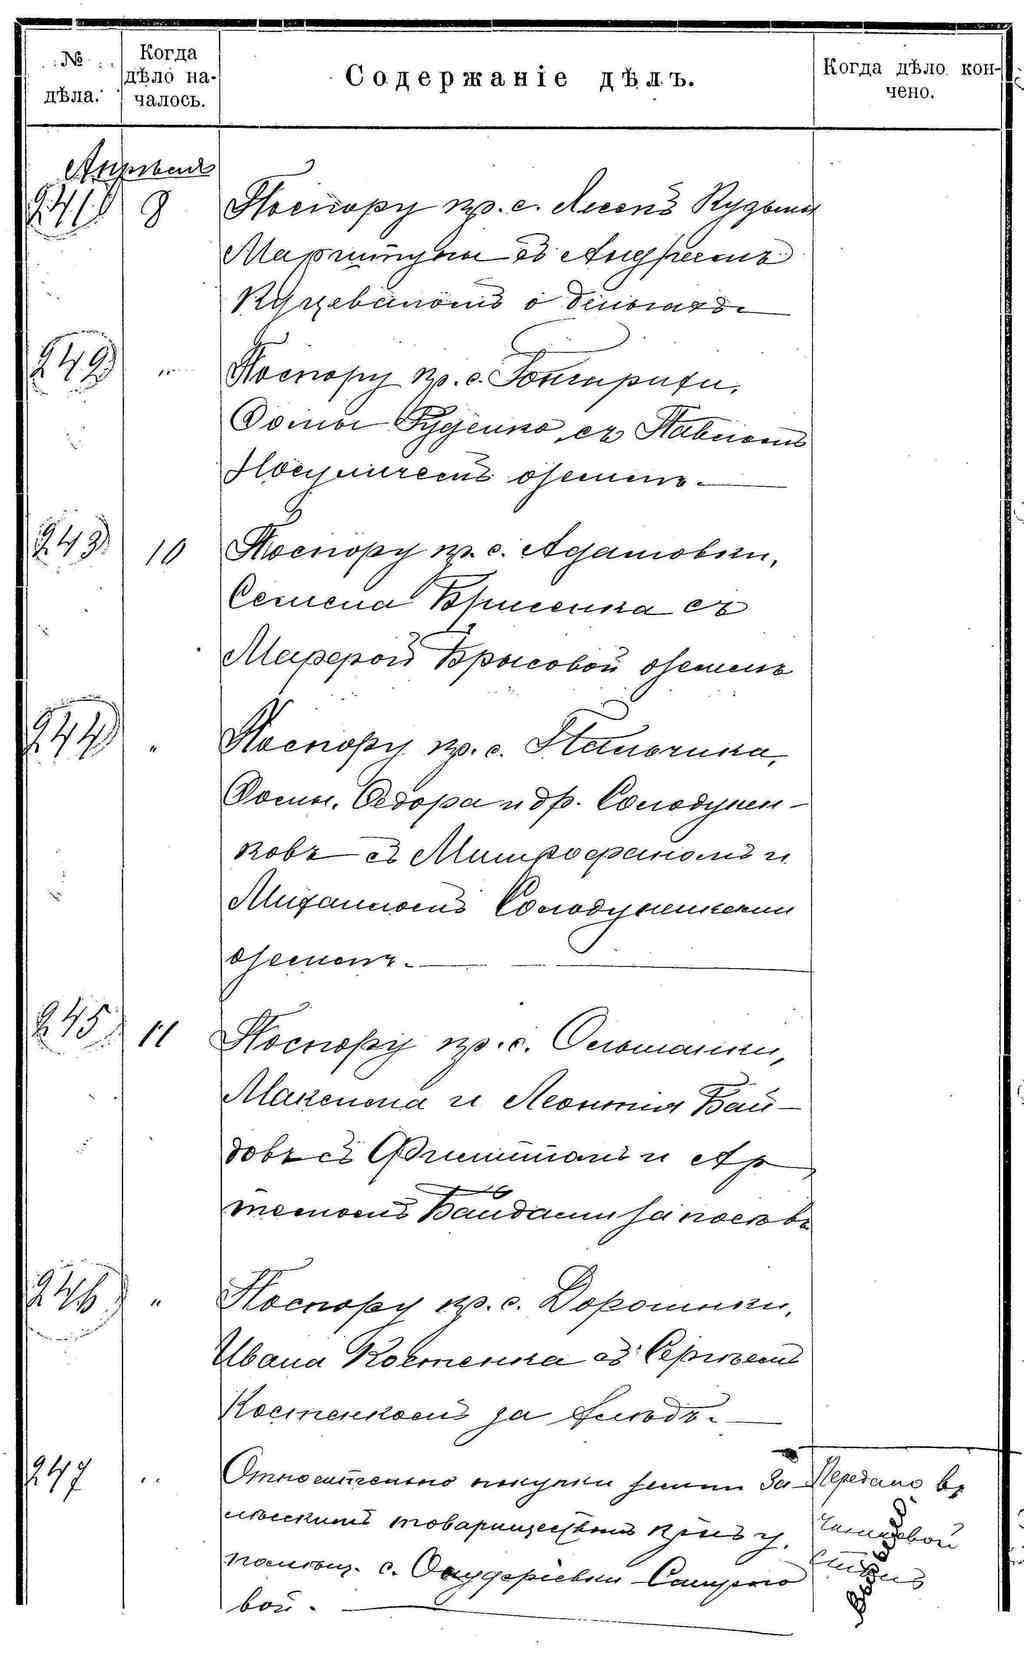 № дѣла.
Когда дѣло на-
чалось.
Содержаніе дѣлъ.
Когда дѣло кон-
чено.
Апрѣль
241 8 По спору кр. с. Лесокъ Кузьмы
съ Андреемъ
о деньгахъ
242 " По спору кр. с.
Фомы Руденко съ Павломъ
о земле. —
243 10 По спору кр. с. Адамовки,
Семена с
Марфой Брысовой о земле
244 " По спору кр. с. Пальчика,
Фомы, Федора и др. Солодунен-
ковъ съ Митрофаномъ и
Михаиломъ Солодуненками
о земле. —
245 11 По спору кр. с. Ольшанки,
Максима и Леонтія Бай-
довъ съ Филиппомъ и Ар
темомъ Байдами за посѣвъ
246 " По спору кр. с. Дорошинки,
Ивана Костенка съ Сергѣемъ
Костенкомъ за —
247 " Относительно покупки земли За-
товариществомъ кр-нъ у
помѣщ. с. Онуфріевки
вой. —
Передано въ
выбыло.